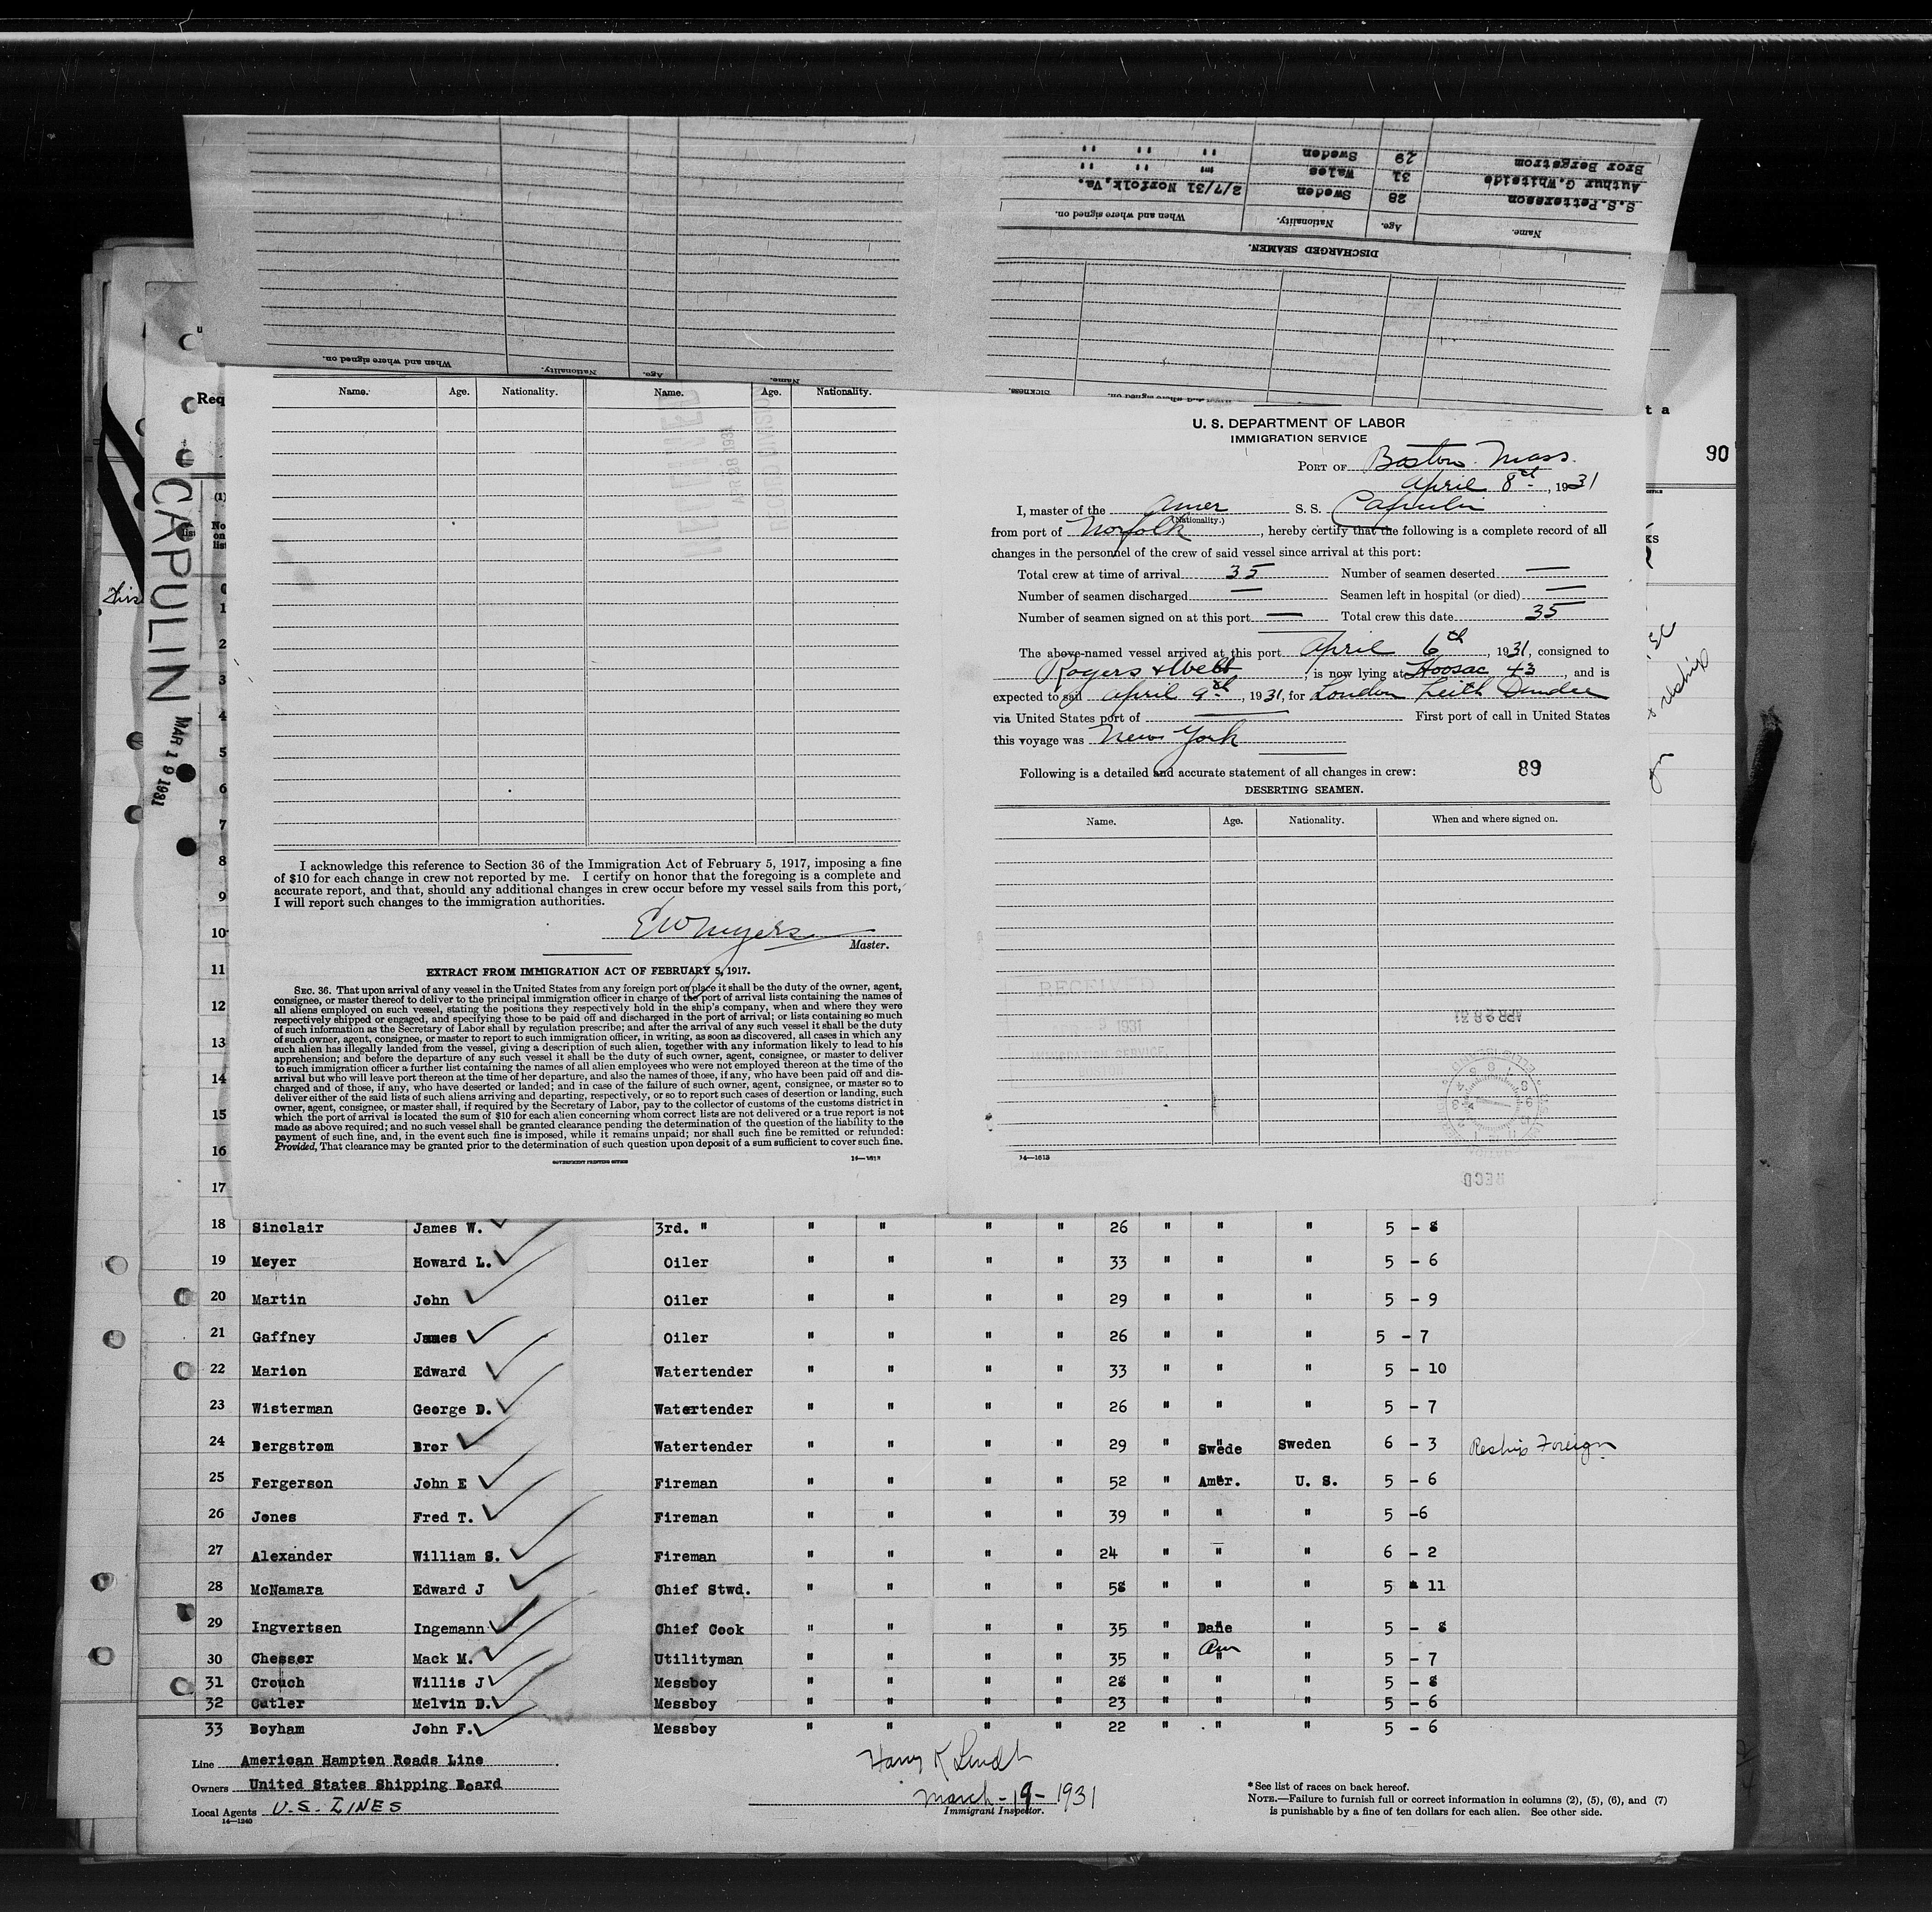 Bror Bergstrom 29 Sweden " " "
Authur G.Whiteside 31 Wales "" " "
S.S.Pettersson 28 Sweden 2/7/31 Norfolk,Va.
Name. Age. Nationality. When and where signed on.
DISCHARGED SEAMEN.
Name. Age. Nationality. When and where signed on.
Sickness.
Req
t a
90
CAPULIN
MAR 19 1931
Name. Age. Nationality. Name. Age. Nationality.
APR 28 1931
RECORD DIVISION
I acknowledge this reference to Section 36 of the Immigration Act of February 5, 1917, imposing a fine
of $10 for each change in crew not reported by me. I certify on honor that the foregoing is a complete and
accurate report, and that, should any additional changes in crew occur before my vessel sails from this port,
I will report such changes to the immigration authorities.
E W Myers
Master.
EXTRACT FROM IMMIGRATION ACT OF FEBRUARY 5, 1917.
SEC. 36. That upon arrival of any vessel in the United States from any foreign port or place it shall be the duty of the owner, agent,
consignee, or master thereof to deliver to the principal immigration officer in charge of the port of arrival lists containing the names of
all aliens employed on such vessel, stating the positions they respectively hold in the ship's company, when and where they were
respectively shipped or engaged, and specifying those to be paid off and discharged in the port of arrival; or lists containing so much
of such information as the Secretary of Labor shall by regulation prescribe; and after the arrival of any such vessel it shall be the duty
of such owner, agent, consignee, or master to report to such immigration officer, in writing, as soon as discovered, all cases in which any
such alien has illegally landed from the vessel, giving a description of such alien, together with any information likely to lead to his
apprehension; and before the departure of any such vessel it shall be the duty of such owner, agent, consignee, or master to deliver
to such immigration officer a further list containing the names of all alien employees who were not employed thereon at the time of the
arrival but who will leave port thereon at the time of her departure, and also the names of those, if any, who have been paid off and dis-
charged and of those, if any, who have deserted or landed; and in case of the failure of such owner, agent, consignee, or master so to
deliver either of the said lists of such aliens arriving and departing, respectively, or so to report such cases of desertion or landing, such
owner, agent, consignee, or master shall, if required by the Secretary of Labor, pay to the collector of customs of the customs district in
which the port of arrival is located the sum of $10 for each alien concerning whom correct lists are not delivered or a true report is not
made as above required; and no such vessel shall be granted clearance pending the determination of the question of the liability to the
payment of such fine, and, in the event such fine is imposed, while it remains unpaid; nor shall such fine be remitted or refunded:
Provided, That clearance may be granted prior to the determination of such question upon deposit of a sum sufficient to cover such fine.
GOVERNMENT PRINTING OFFICE 14—1613
U. S. DEPARTMENT OF LABOR
IMMIGRATION SERVICE
PORT OF Boston Mass.
April 8th, 1931
I, master of the Amer S. S. Capulin
(Nationality.)
from port of Norfolk, hereby certify that the following is a complete record of all
changes in the personnel of the crew of said vessel since arrival at this port:
Total crew at time of arrival 35 Number of seamen deserted —
Number of seamen discharged — Seamen left in hospital (or died) —
Number of seamen signed on at this port — Total crew this date 35
The above-named vessel arrived at this port April 6th, 1931, consigned to
Rogers & Webb, is now lying at Hoosac 43, and is
expected to sail April 9th, 1931, for London Leith Dundee
via United States port of — First port of call in United States
this voyage was New York
Following is a detailed and accurate statement of all changes in crew: 89
DESERTING SEAMEN.
Name. Age. Nationality. When and where signed on.
RECEIVED
1931
APR 28 31
14—1613
REC'D
(1)
No
on
list
1
2
3
4
5
6
7
8
9
10
11
12
13
14
15
16
17
18 Sinclair James W. 3rd. " " " " " 26 " " " 5 - 8
19 Meyer Howard L. Oiler " " " " 33 " " " 5 - 6
20 Martin John Oiler " " " " 29 " " " 5 - 9
21 Gaffney James Oiler " " " " 26 " " " 5 - 7
22 Marion Edward Watertender " " " " 33 " " " 5 - 10
23 Wisterman George D. Watertender " " " " 26 " " " 5 - 7
24 Bergstrom Bror Watertender " " " " 29 " Swede Sweden 6 - 3 Reship Foreign
25 Fergerson John E Fireman " " " " 52 " Amer. U. S. 5 - 6
26 Jones Fred T. Fireman " " " " 39 " " " 5 -6
27 Alexander William S. Fireman " " " " 24 " " " 6 - 2
28 McNamara Edward J Chief Stwd. " " " " 58 " " " 5 - 11
29 Ingvertsen Ingemann Chief Cook " " " " 35 " Dane " 5 - 8
30 Chesser Mack M. Utilityman " " " " 35 " Am " 5 - 7
31 Crouch Willis J Messboy " " " " 28 " " " 5 - 8
32 Cutler Melvin D. Messboy " " " " 23 " " " 5 - 6
33 Boyham John F. Messboy " " " " 22 " " " 5 - 6
Line American Hampton Roads Line
Owners United States Shipping Board
Local Agents U.S. LINES
14—1240
March-19-1931
Immigrant Inspector.
*See list of races on back hereof.
NOTE.—Failure to furnish full or correct information in columns (2), (5), (6), and (7)
is punishable by a fine of ten dollars for each alien. See other side.